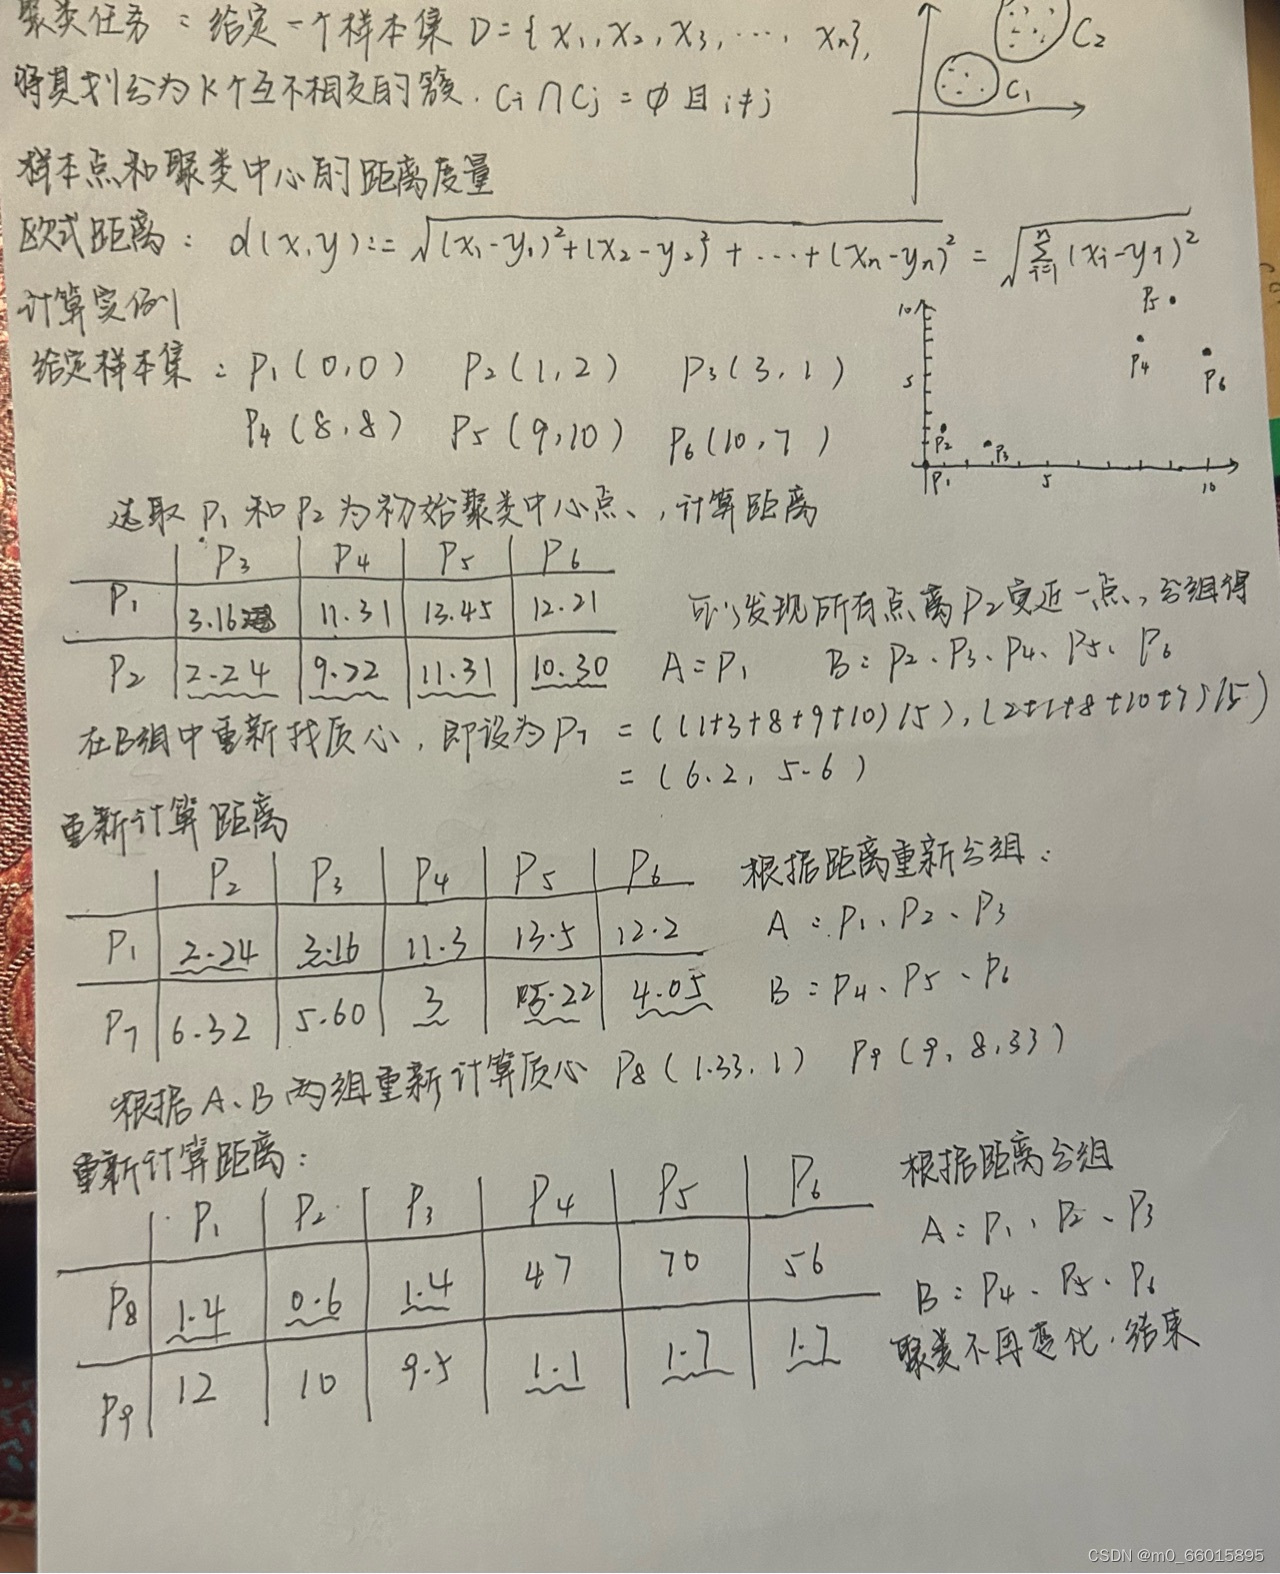 聚类任务：给定一个样本集 D={x₁,x₂,x₃,…,xₙ},
将其划分为K个互不相交的簇. Ci∩Cj=∅ 且 i≠j
C₂
C₁
样本点和聚类中心的距离度量
欧式距离：d(x,y):=√((x₁-y₁)²+(x₂-y₂)²+…+(xₙ-yₙ)²) = √(Σⁿᵢ₌₁(xᵢ-yᵢ)²)
计算实例
给定样本集：P₁(0,0) P₂(1,2) P₃(3,1)
P₄(8,8) P₅(9,10) P₆(10,7)
10 P₅
P₄ P₆
5
P₂ P₃
P₁ 5 10
选取P₁和P₂为初始聚类中心点,计算距离
P₃ P₄ P₅ P₆
P₁ 3.16 11.31 13.45 12.21
P₂ 2.24 9.22 11.31 10.30
可以发现所有点离P₂更近一点,分组得
A:P₁ B:P₂、P₃、P₄、P₅、P₆
在B组中重新找质心,即设为P₇=((1+3+8+9+10)/5),(2+1+8+10+7)/5)
=(6.2, 5.6)
重新计算距离
P₂ P₃ P₄ P₅ P₆
P₁ 2.24 3.16 11.3 13.5 12.2
P₇ 6.32 5.60 3 5.22 4.05
根据距离重新分组：
A:P₁、P₂、P₃
B:P₄、P₅、P₆
根据A、B两组重新计算质心 P₈(1.33,1) P₉(9,8.33)
重新计算距离：
P₁ P₂ P₃ P₄ P₅ P₆
P₈ 1.4 0.6 1.4 47 70 56
P₉ 12 10 9.5 1.1 1.7 1.7
根据距离分组
A:P₁、P₂、P₃
B:P₄、P₅、P₆
聚类不再变化,结束
CSDN @m0_66015895